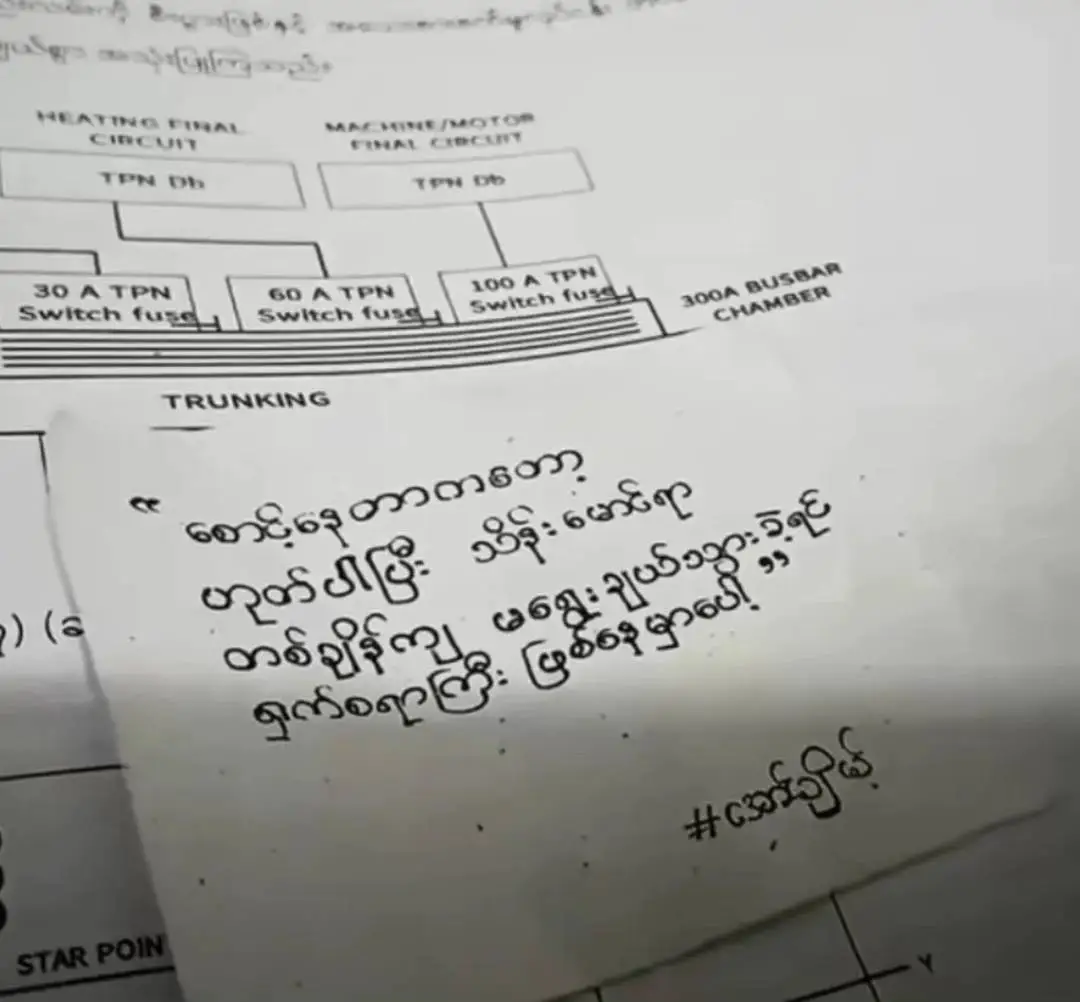 HEATING FINAL
CIRCUIT
MACHINE/MOTOR
FINAL CIRCUIT
TPN Db
TPN Db
30 A TPN
Switch fuse
60 A TPN
Switch fuse
100 A TPN
Switch fuse
300A BUSBAR
CHAMBER
TRUNKING
“ စောင့်နေတာကတော့
ဟုတ်ပါပြီး သိန်းမောင်ရာ
တစ်ချိန်ကျ မရွေးချယ်သွားခဲ့ရင်
ရှက်စရာကြီး ဖြစ်နေမှာပေါ့ ”
#အော်ချိမ့်
STAR POIN
Y